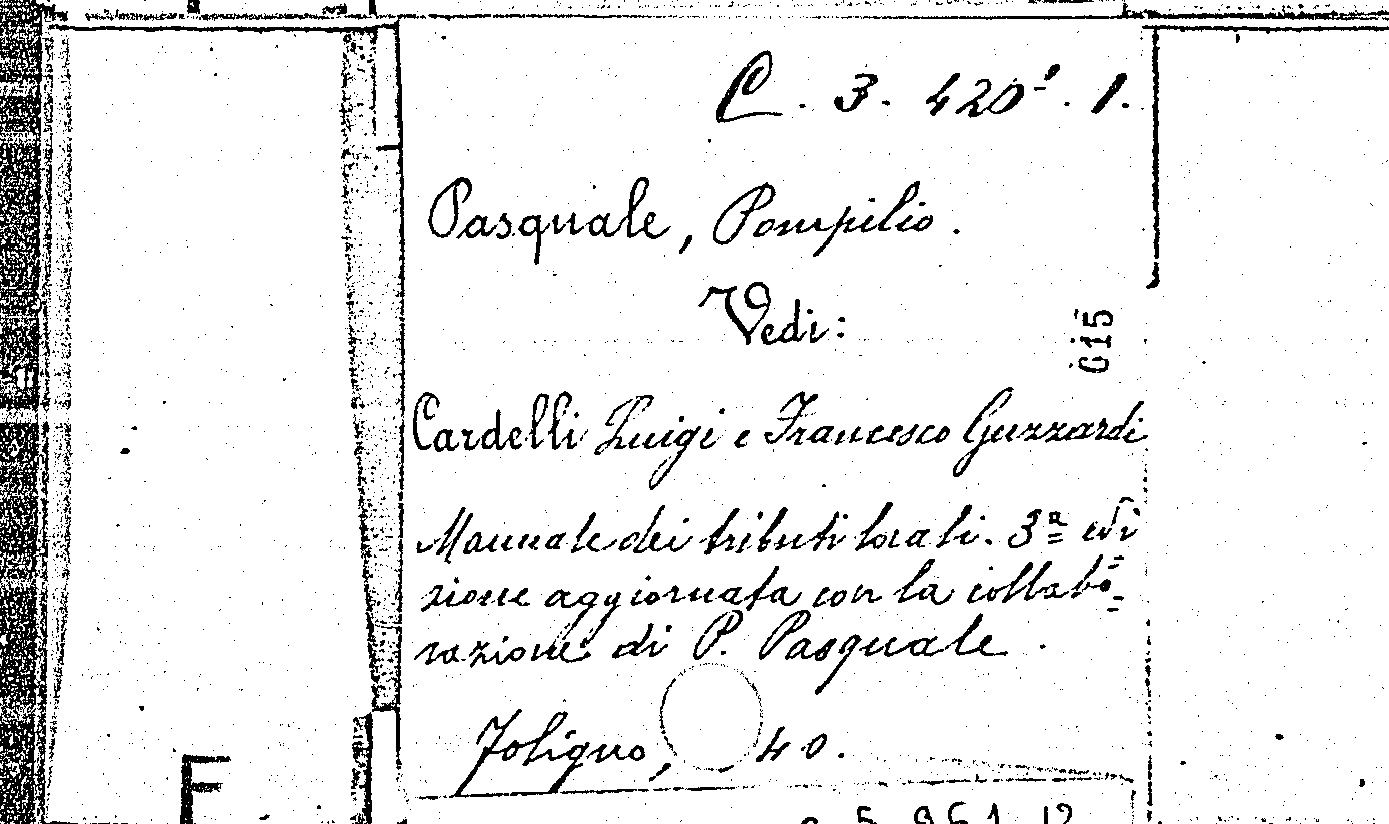 C. 3. 420¹. 1.
Pasquale, Pompilio.
Vedi:
615
Cardelli Luigi e Francesco Guzzardi
Manuale dei tributi locali. 3ª edi
zione aggiornata con la collabo=
razione di P. Pasquale.
Foligno, 40.
F